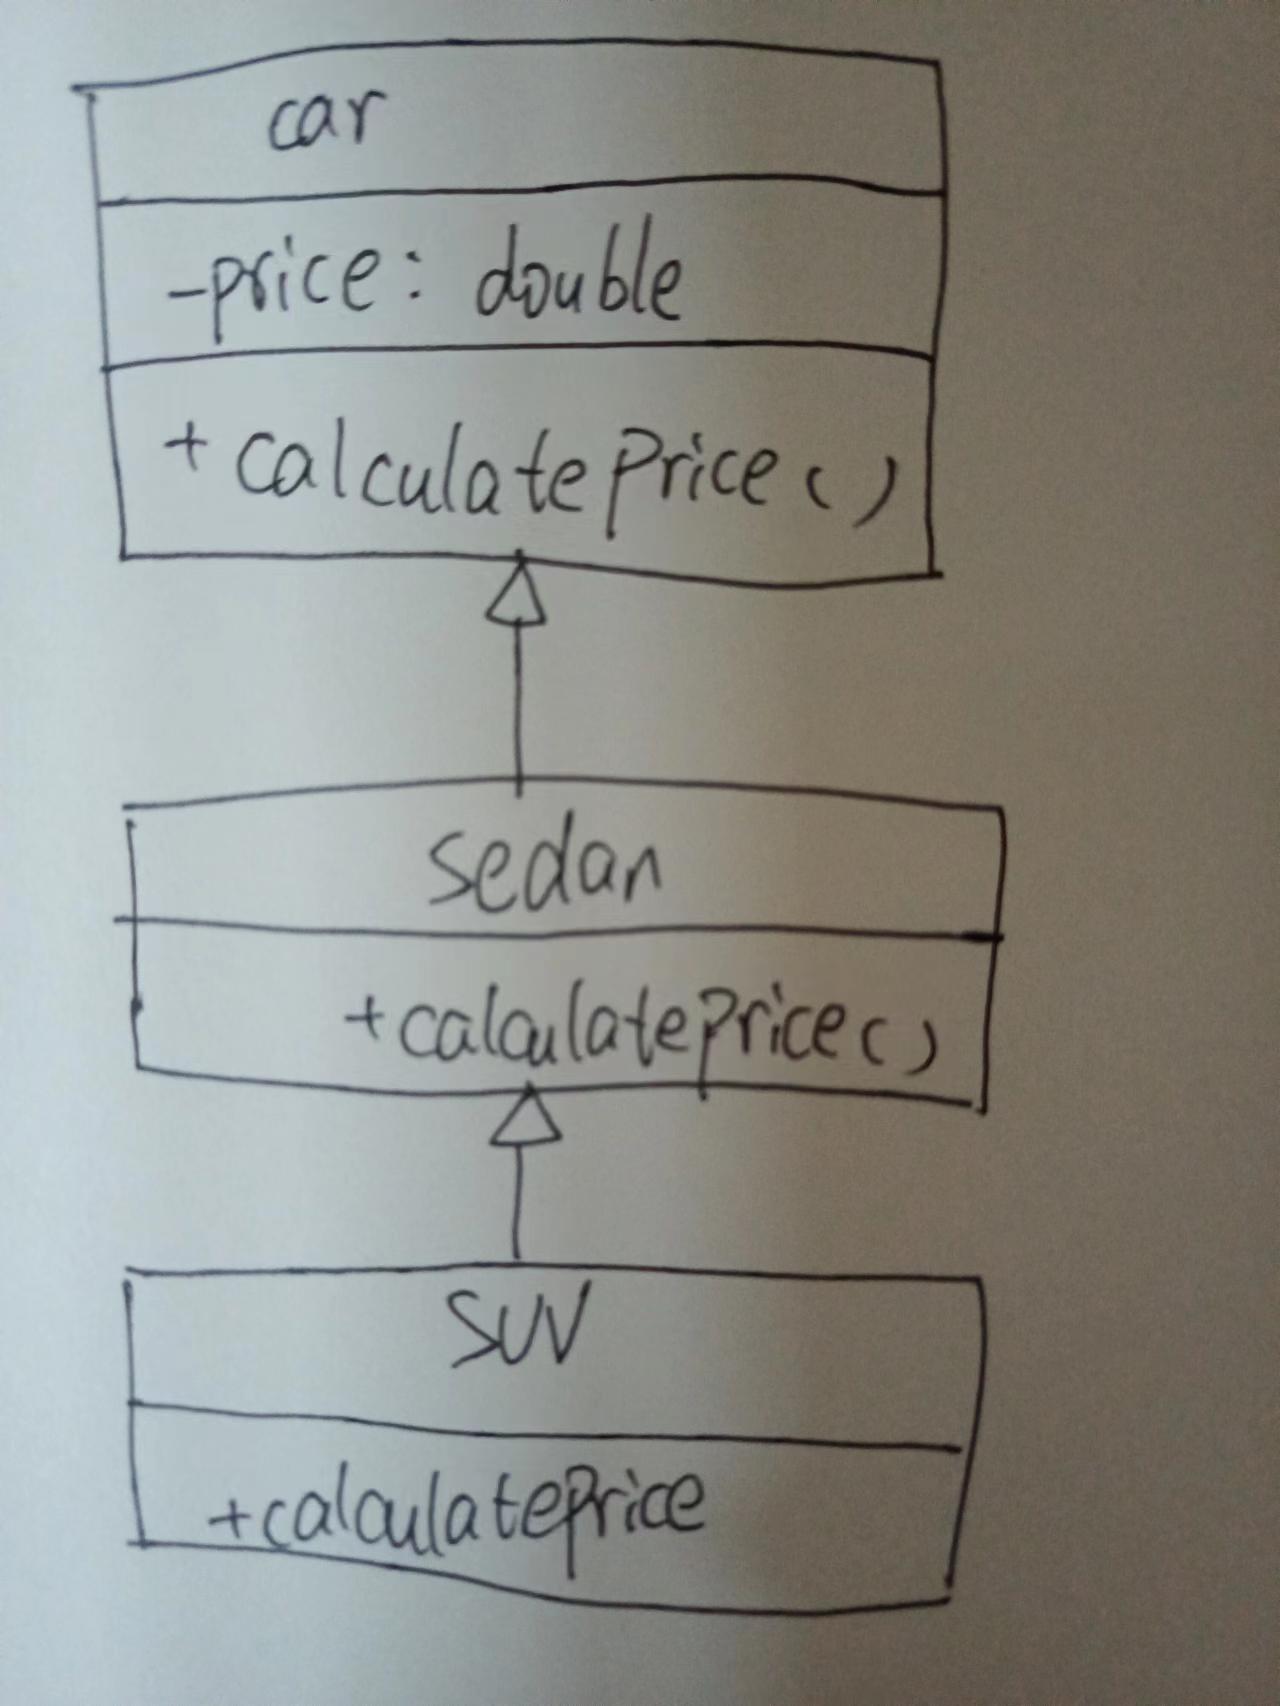 car
-price: double
+calculatePrice()
sedan
+calculatePrice()
SUV
+calculatePrice